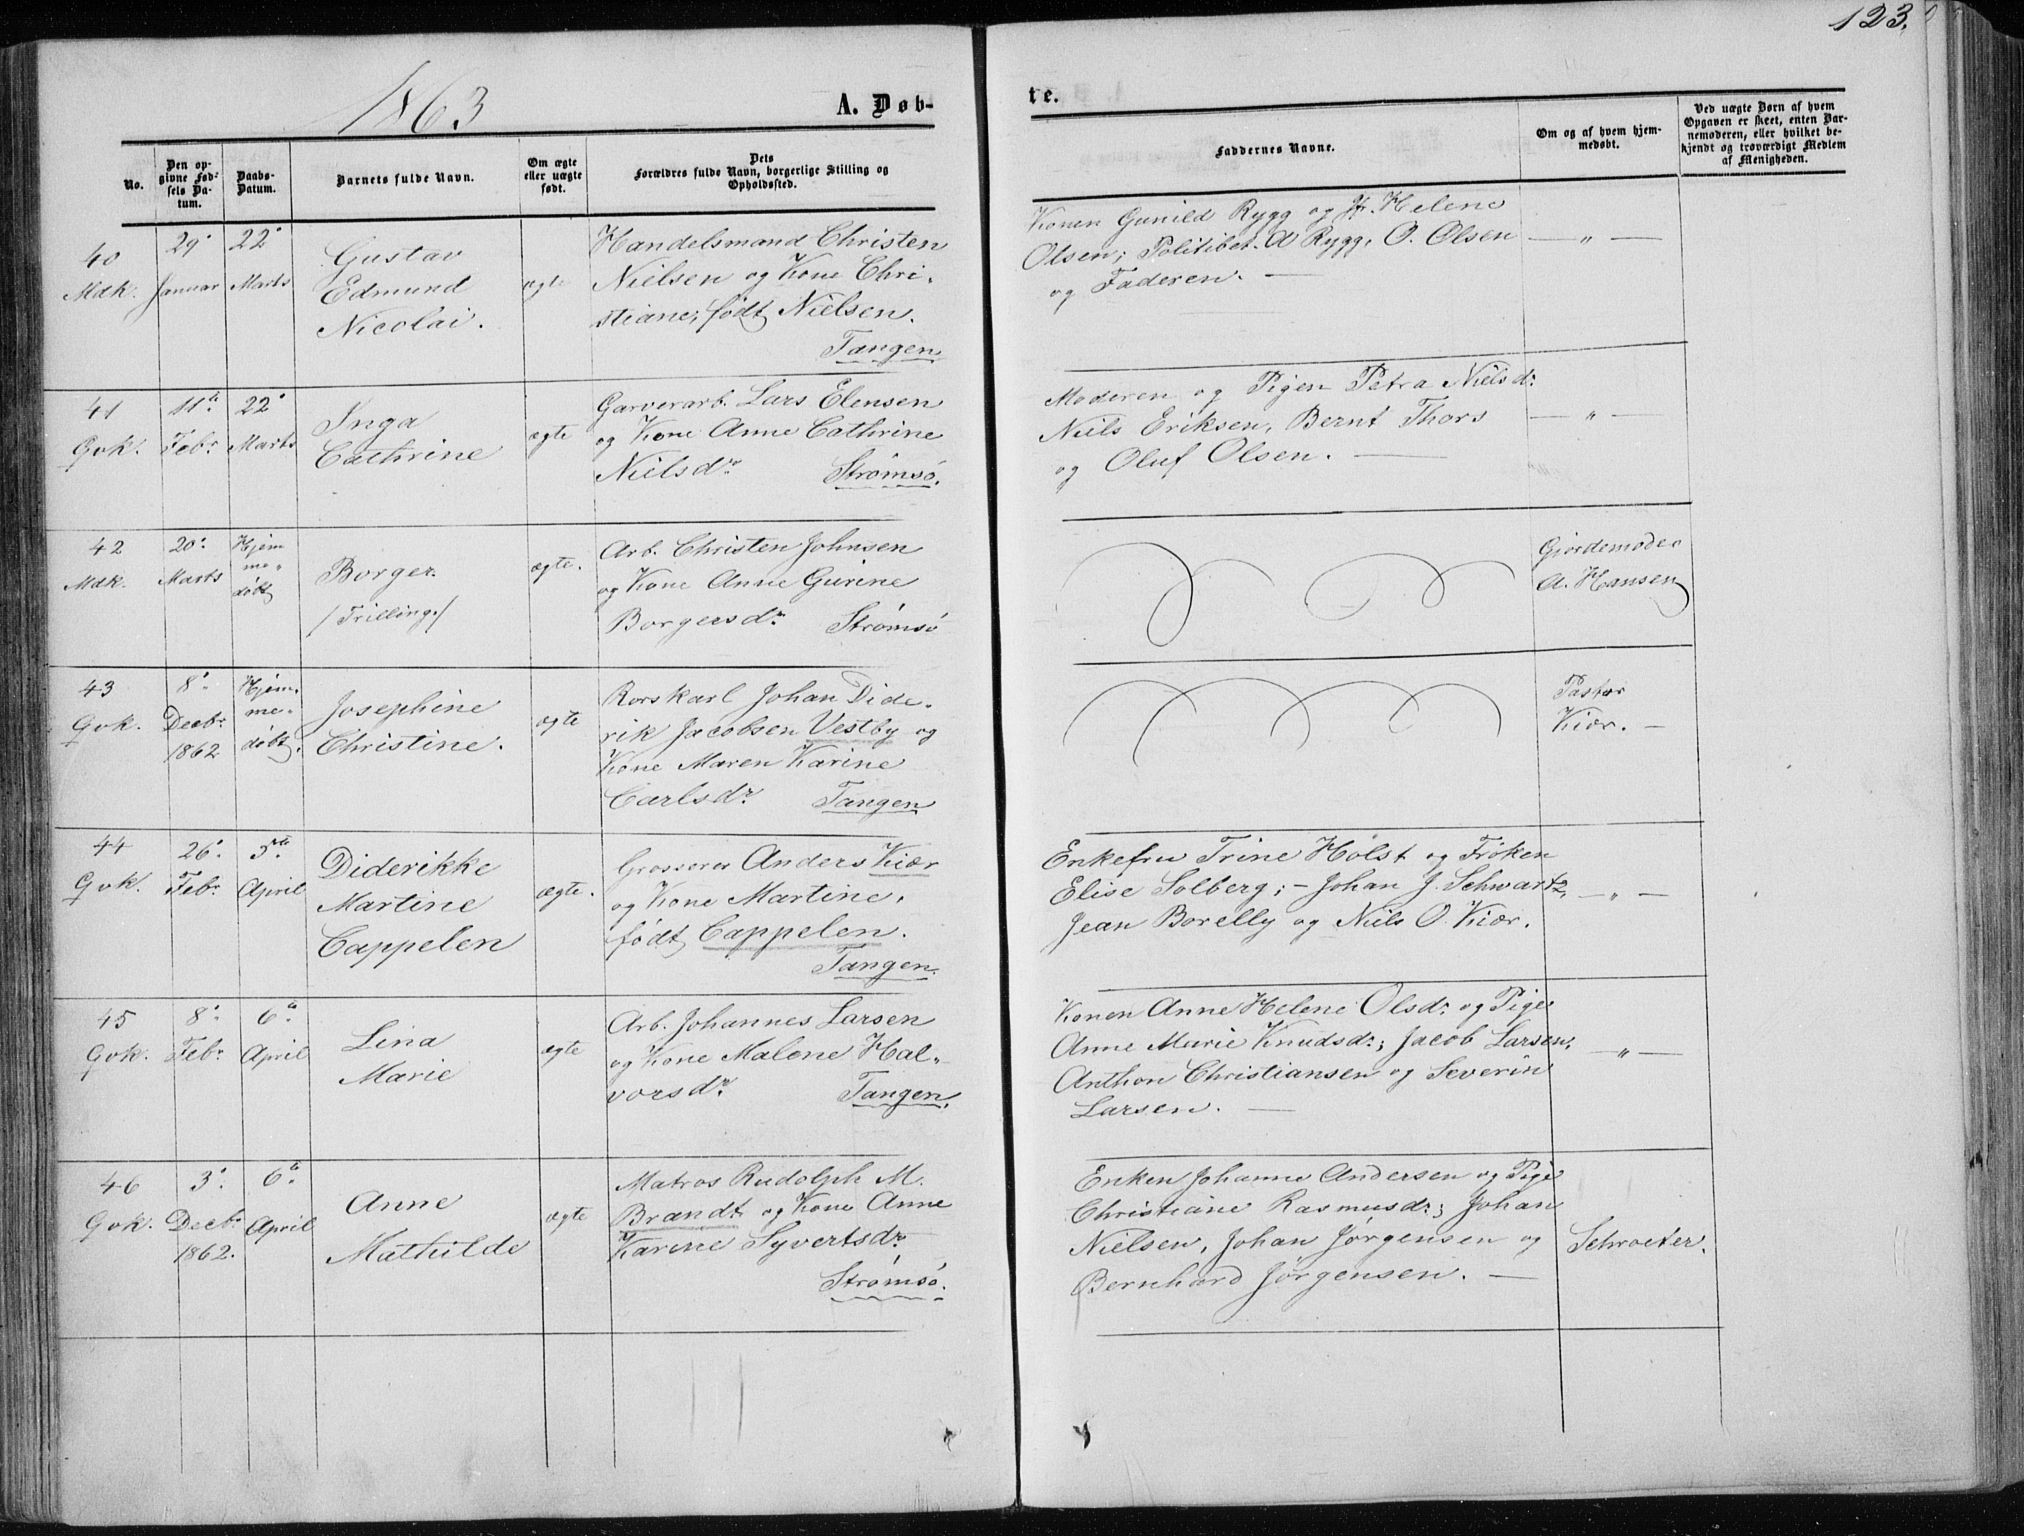 123.
1863
A. Døb-
te.
No.
Den op-
givne Fød-
sels Da-
tum.
Daabs-
Datum.
Barnets fulde Navn.
Om ægte
eller uægte
født.
Dets
Forældres fulde Navn, borgerlige Stilling og
Opholdssted.
Faddernes Navne.
Om og af hvem hjem-
medøbt.
Ved uægte Børn af hvem
Opgaven er skeet, enten Bar-
nemoderen, eller hvilket be-
kjendt og troværdigt Medlem
af Menigheden.
40
Mdk.
29'
Januar
22'
Marts
Gustav
Edmund
Nicolai.
ægte
Handelsmand Christen
Nielsen og Kone Chri-
stiane, født Nielsen.
Tangen
Konen Gunild Rygg og Jfr. Helene
Olsen; Politibet. A Rygg, O. Olsen
og Faderen. —
— „ —
41
Gvk.
11te
Febr
22'
Marts
Inga
Cathrine
ægte
Garverarb. Lars Elensen
og Kone Anne Cathrine
Nielsdr
Strømsö.
Moderen og Pigen Petra Nielsd:
Niels Eriksen, Bernt Thors
og Oluf Olsen. —
— „ —
42
Mdk.
20'
Marts
Hjem
me-
døbt
Borger.
/Trilling/
ægte.
Arb. Christen Johnsen
og Kone Anne Gurine
Borgersdr
Strømsö
Gjordemoder
A. Hansen
43
Gvk.
8'
Decbr
1862
Hjem-
me-
døbt.
Josephine
Christine.
ægte
Rorskarl Johan Dide-
rik Jacobsen Vestby og
Kone Maren Karine
Carlsdr
Tangen
Pastor
Kiær. —
44
Gvk.
26'
Febr
5te
April
Diderikke
Martine
Cappelen
ægte.
Grosserer Anders Kiær
og Kone Martine,
født Cappelen.
Tangen.
Enkefru Trine Holst og Frøken
Elise Solberg; – Johan J. Schwartz,
Jean Borelly og Niels O. Kiær.
— „ —
45
Gvk.
8'
Febr
6te
April
Lina
Marie
ægte
Arb. Johannes Larsen
og Kone Malene Hal-
vorsdr
Tangen.
Konen Anne Helene Olsdr og Pige
Anne Marie Knudsdr; Jacob Larsen,
Anthon Christiansen og Severin
Larsen. —
— „ —
46
Gvk.
3'
Decbr
1862.
6te
April
Anne
Mathilde
ægte
Matros Rudolph M.
Brandt og Kone Anne
Karine Syvertsdr
Strømsö.
Enken Johanne Andersen og Pige
Christiane Rasmusdr; Johan
Nielsen, Johan Jørgensen og
Bernhard Jørgensen. —
Schroeter.